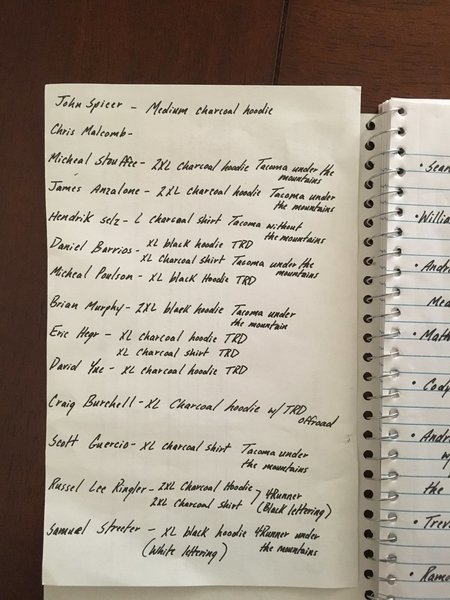 John Spicer - Medium charcoal hoodie
Chris Malcomb-
Micheal Stouffee - 2XL Charcoal hoodie Tacoma under the
mountains
James Anzalone - 2XL charcoal hoodie Tacoma under
the mountains
Hendrik Selz - L charcoal shirt Tacoma without
the mountains
Daniel Barrios - XL black hoodie TRD
XL Charcoal shirt Tacoma under the
mountains
Micheal Poulson - XL black Hoodie TRD
Brian Murphy - 2XL black hoodie Tacoma under
the mountain
Eric Hegr - XL charcoal hoodie TRD
XL charcoal shirt TRD
David - XL charcoal hoodie TRD
Craig Burchell - XL Charcoal hoodie w/ TRD
offroad
Scott Guercio - XL charcoal shirt Tacoma under
the mountains
Russel Lee Ringler - 2XL Charcoal Hoodie
2XL charcoal shirt
4Runner
(Black lettering)
Samuel Streeter - XL black hoodie 4Runner under
(White lettering) the mountains
• Sean
• Willia
• Andr
Med
• Math
• Cody
• Andr
w/
the
• Trev
• Ramo